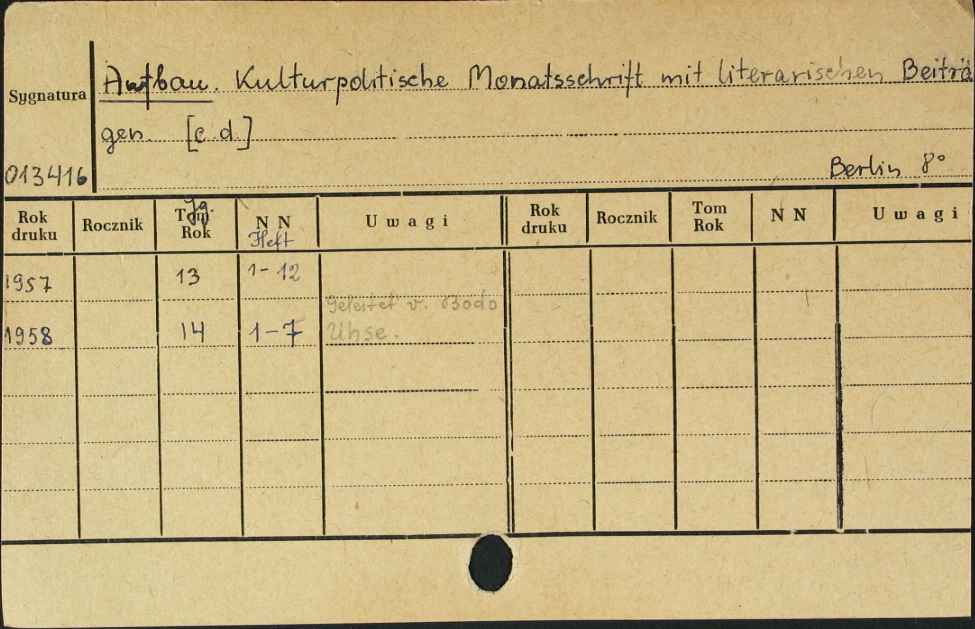 Aufbau. Kulturpolitische Monatsschrift mit literarischen Beiträ
Sygnatura
gen. [c.d.]
013416
Berlin 8°
Rok druku Rocznik Tom Rok Jg. N N Heft Uwagi Rok druku Rocznik Tom Rok N N Uwagi
1957 13 1-12
Geleitet v. Bodo
1958 14 1-7 Uhse.